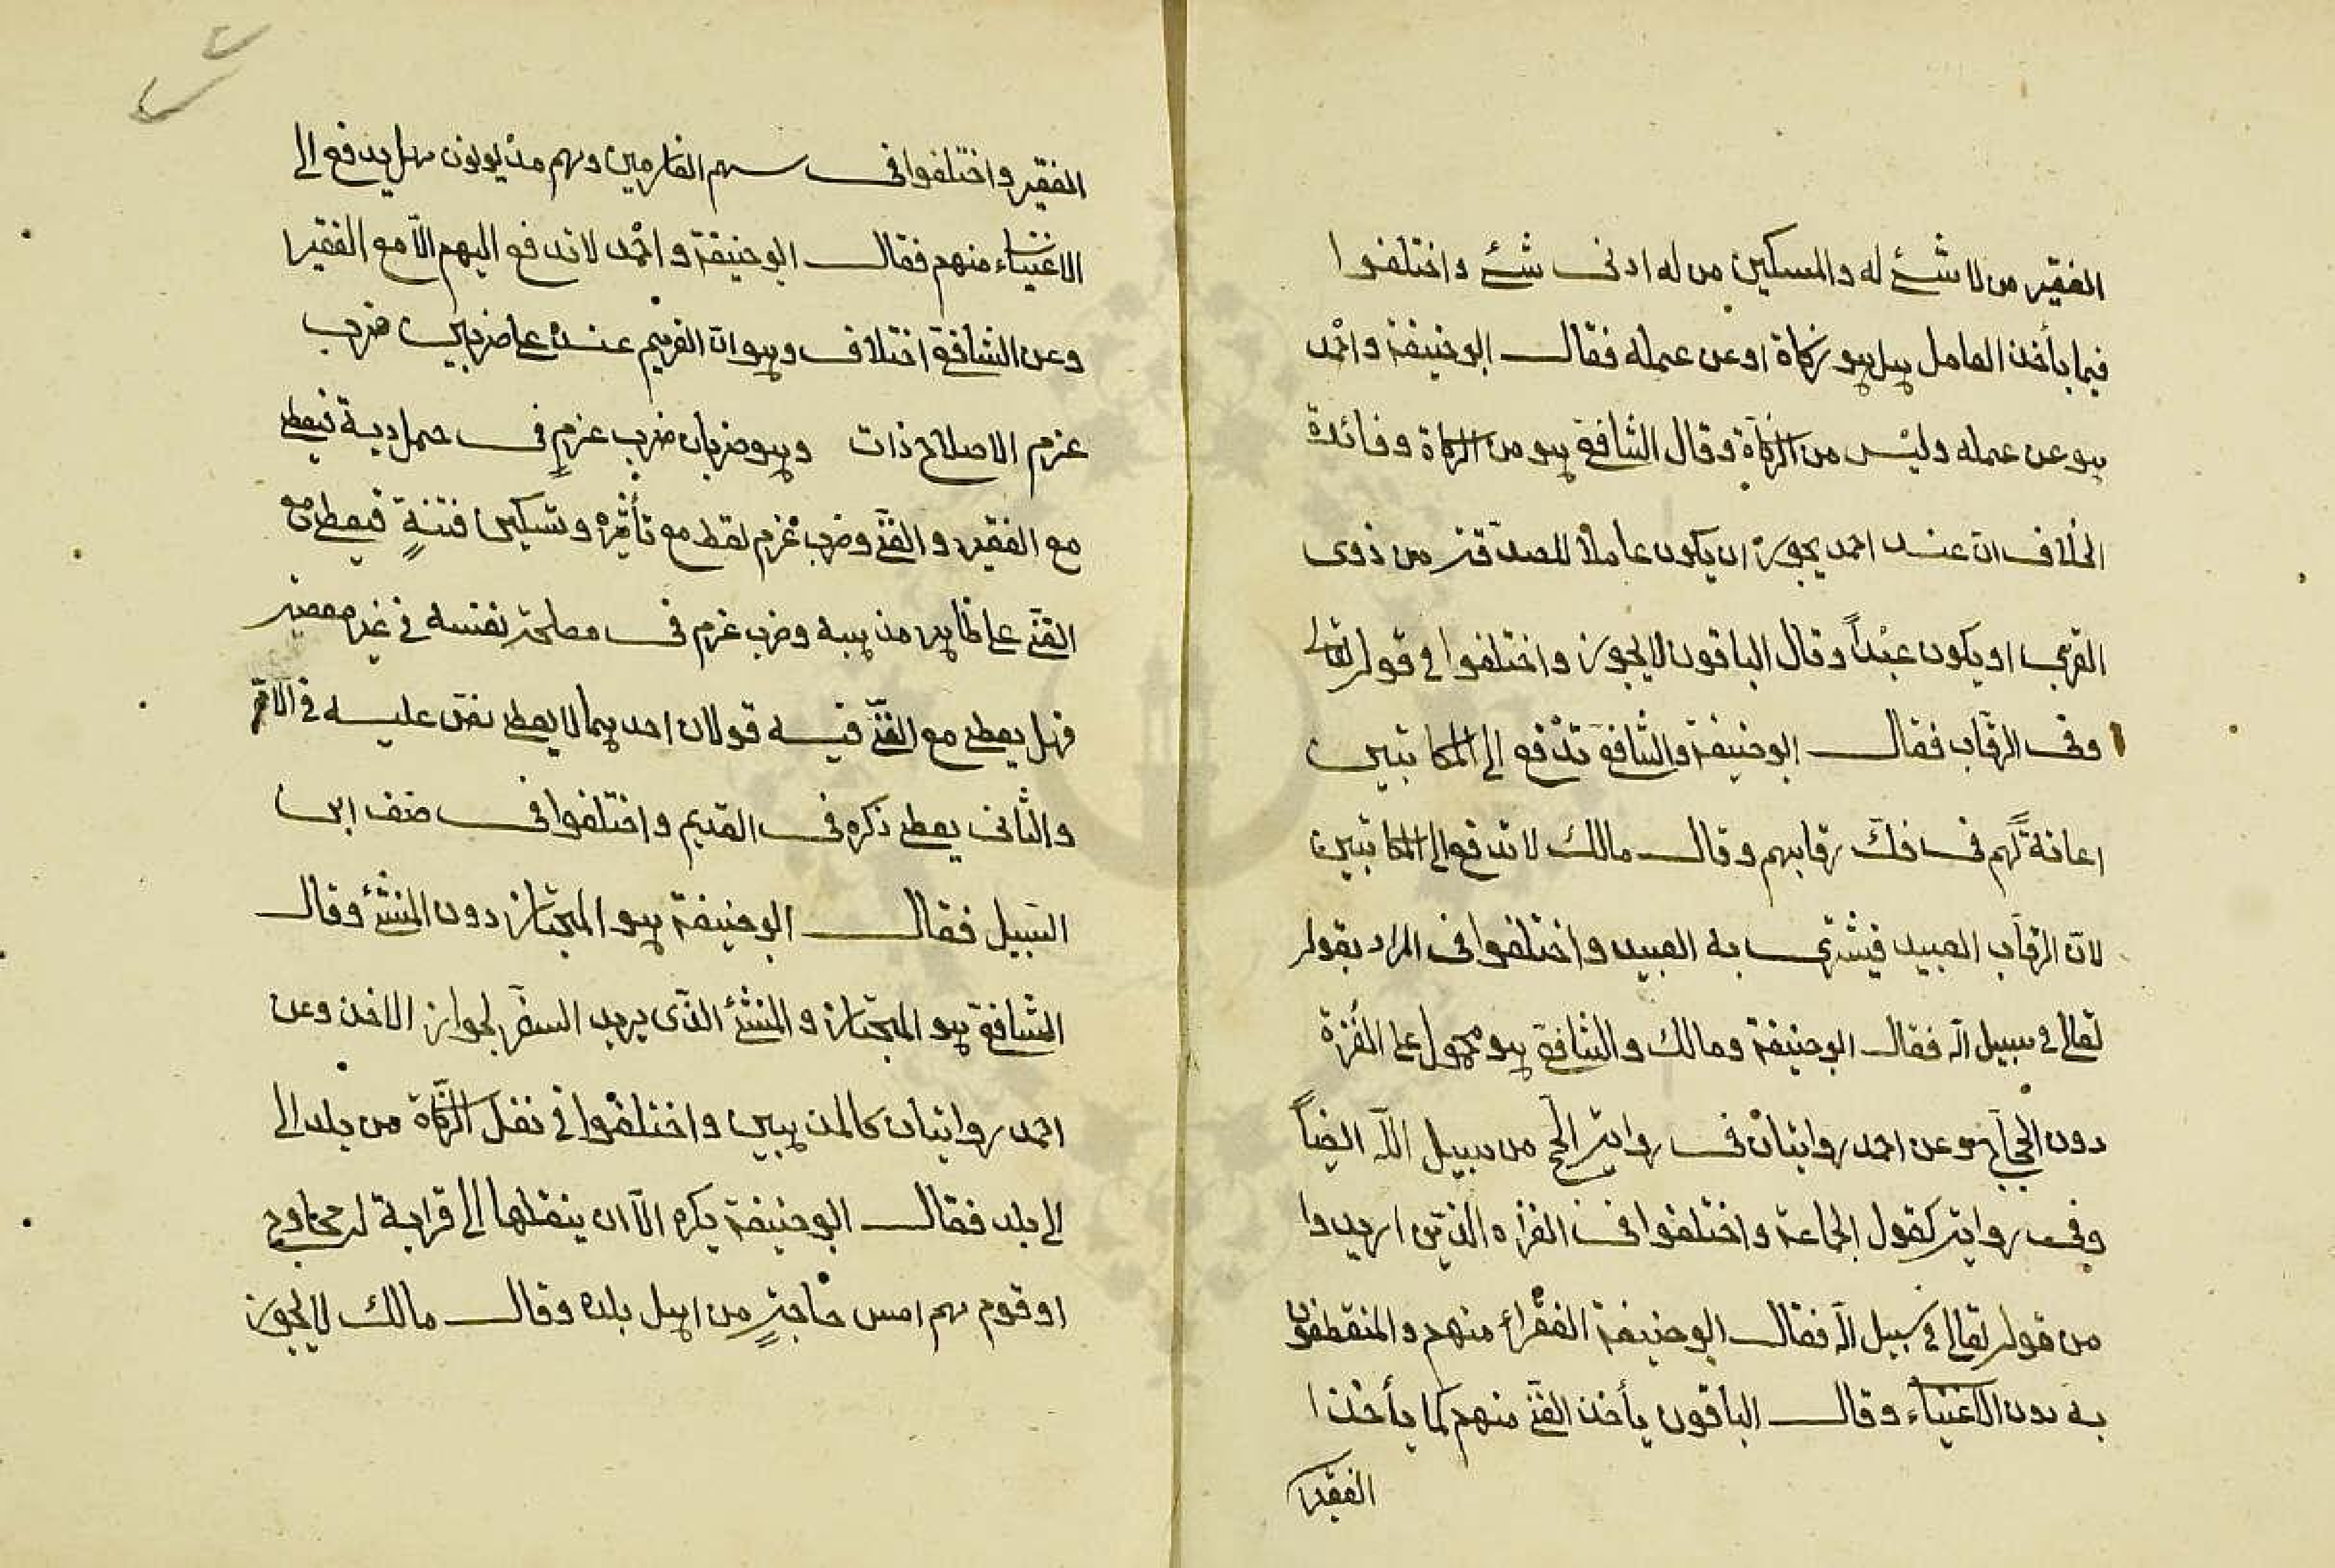 الفقير من لا شئ له والمسكين من له ادنى شئ واختلفوا
فيما يأخذ العامل هل هو زكاة او عن عمله فقال ابو حنيفة واحمد
هو عن عمله وليس من الزكاة وقال الشافعى هو من الزكاة وفائدة
الخلاف ان عند احمد يجوز ان يكون عاملا للصدقة من ذوى
القربى او يكون عبداً وقال الباقون لا يجوز واختلفوا فى قوله تعالى
وفى الرقاب فقال ابو حنيفة والشافعى تدفع الى المكاتبين
اعانةً لهم فى فكّ رقابهم وقال مالك لا تدفع الى المكاتبين
لان الرقاب العبيد فيشترى به العبيد واختلفوا فى المراد بقوله
تعالى فى سبيل الله فقال ابو حنيفة ومالك والشافعى هو محمول على الغزاة
دون الحجاج وعن احمد روايتان فى رواية الحج من سبيل الله ايضاً
وفى رواية كقول الجماعة واختلفوا فى الغزاه الذين اريدوا
من قوله تعالى فى سبيل الله فقال ابو حنيفة الفقراء منهم والمنقطعون
به دون الاغنياء وقال الباقون يأخذ الغنى منهم كما يأخذ ا
الفقير
الفقير واختلفوا فى سهم الغارمين وهم مديونون هل يدفع الى
الاغنياء منهم فقال ابو حنيفة واحمد لا تدفع اليهم الا مع الفقير
وعن الشافعى اختلاف وهو ان الغريم عنده على ضربين ضرب
غرم الاصلاح ذات وهو ضربان ضرب غرمٍ فى حمل دية فيعطى
مع الفقير والغنى وضرب غرم لقطع مع تأثيره وتسكين فتنةٍ فيعطى مع
الغنى على ظاهر مذهبه وضرب غرم فى مصلحة نفسه فى غير معصية
فهل يعطى مع الغنى فيه قولان احدهما لا يعطى نص عليه فى الام
والثانى يعطى ذكره فى القديم واختلفوا فى صنف ابن
السبيل فقال ابو حنيفة هو المجتاز دون المنشئ وقال
الشافعى هو المجتاز والمنشئ الذى يريد السفر لجواز الاخذ وعن
احمد روايتان كالمذهبين واختلفوا فى نقل الزكاة من بلد الى
الى بلد فقال ابو حنيفة يكره الا ان ينقلها الى قرابة له محاويج
او قوم هم امس حاجةٍ من اهل بلده وقال مالك لا يجوز